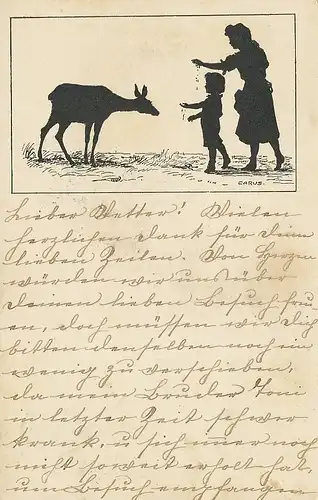 CARUS.
Lieber Vetter! Vielen
herzlichen Dank für deine
lieben Zeilen. Von Herzen
würden wir uns über
deinen lieben Besuch freu-
en, doch müssen wir dich
bitten denselben noch ein
wenig zu verschieben,
da mein Bruder Toni
in letzter Zeit schwer
krank, u sich immer noch
nicht soweit erholt hat,
um Besuch empfangen